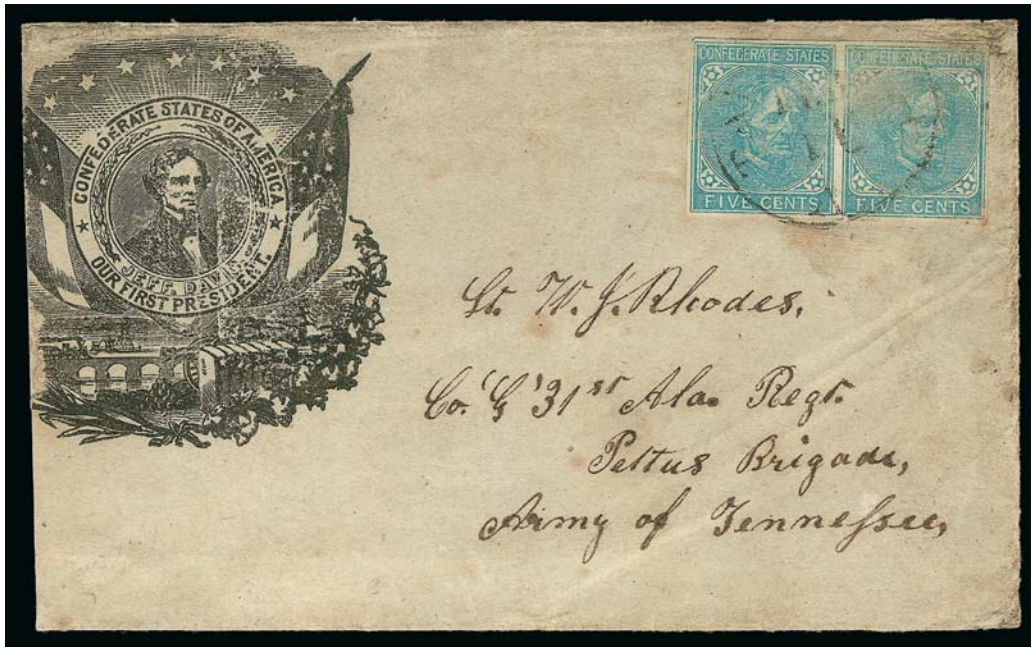 CONFEDERATE STATES OF AMERICA
JEFF. DAVIS
OUR FIRST PRESIDENT.
CONFEDERATE STATES
FIVE CENTS
CONFEDERATE STATES
FIVE CENTS
Lt. W. J. Rhodes,
Co. 'G' 31st Ala. Regt.
Pettus Brigade,
Army of Tennessee,